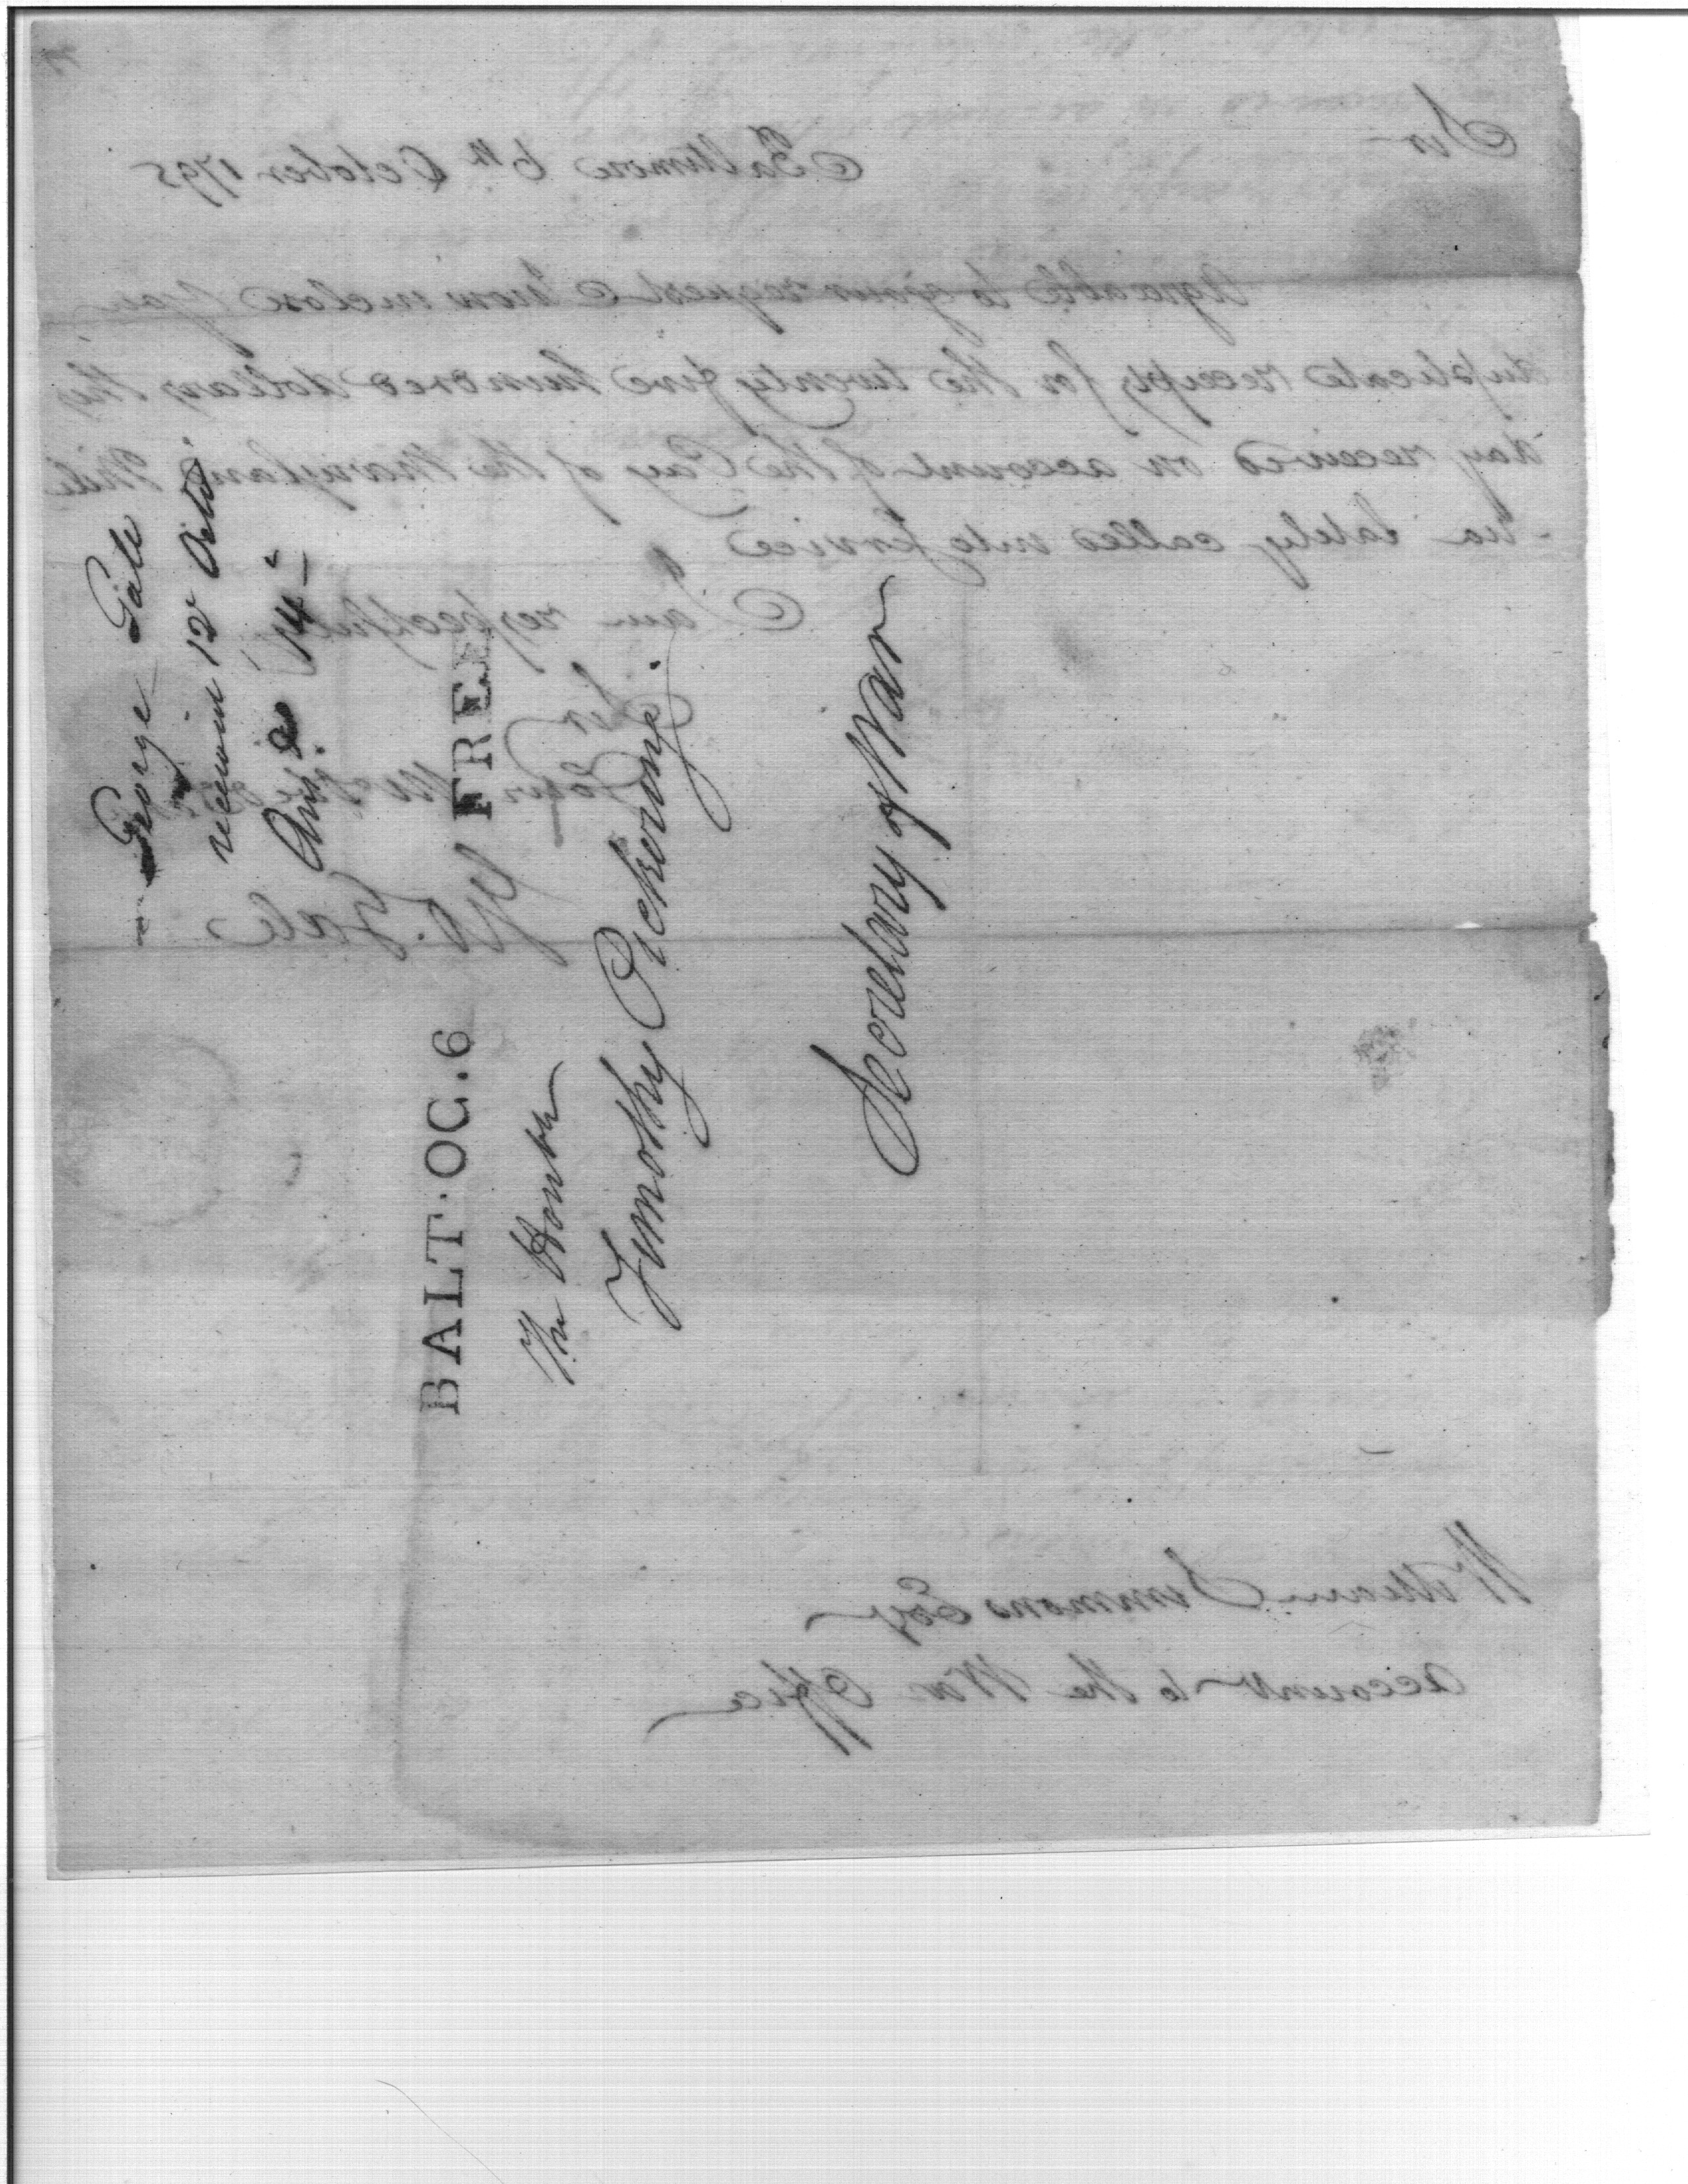 George Gale
received 12 Octo.
Ans.d 14
BALT. OC. 6 FREE
The Honble
Timothy Pickering.
Secretary of War
Baltimore 6th October 1795
Sir
Agreeable to your request I now inclose you
duplicate receipts for the twenty five hundred dollars this
day received on account of the Pay of the Maryland Mili
-tia lately called into service
I am respectfully
Sir
Your
Go. Gale
William Simmons Esqr
Accountt to the War Office